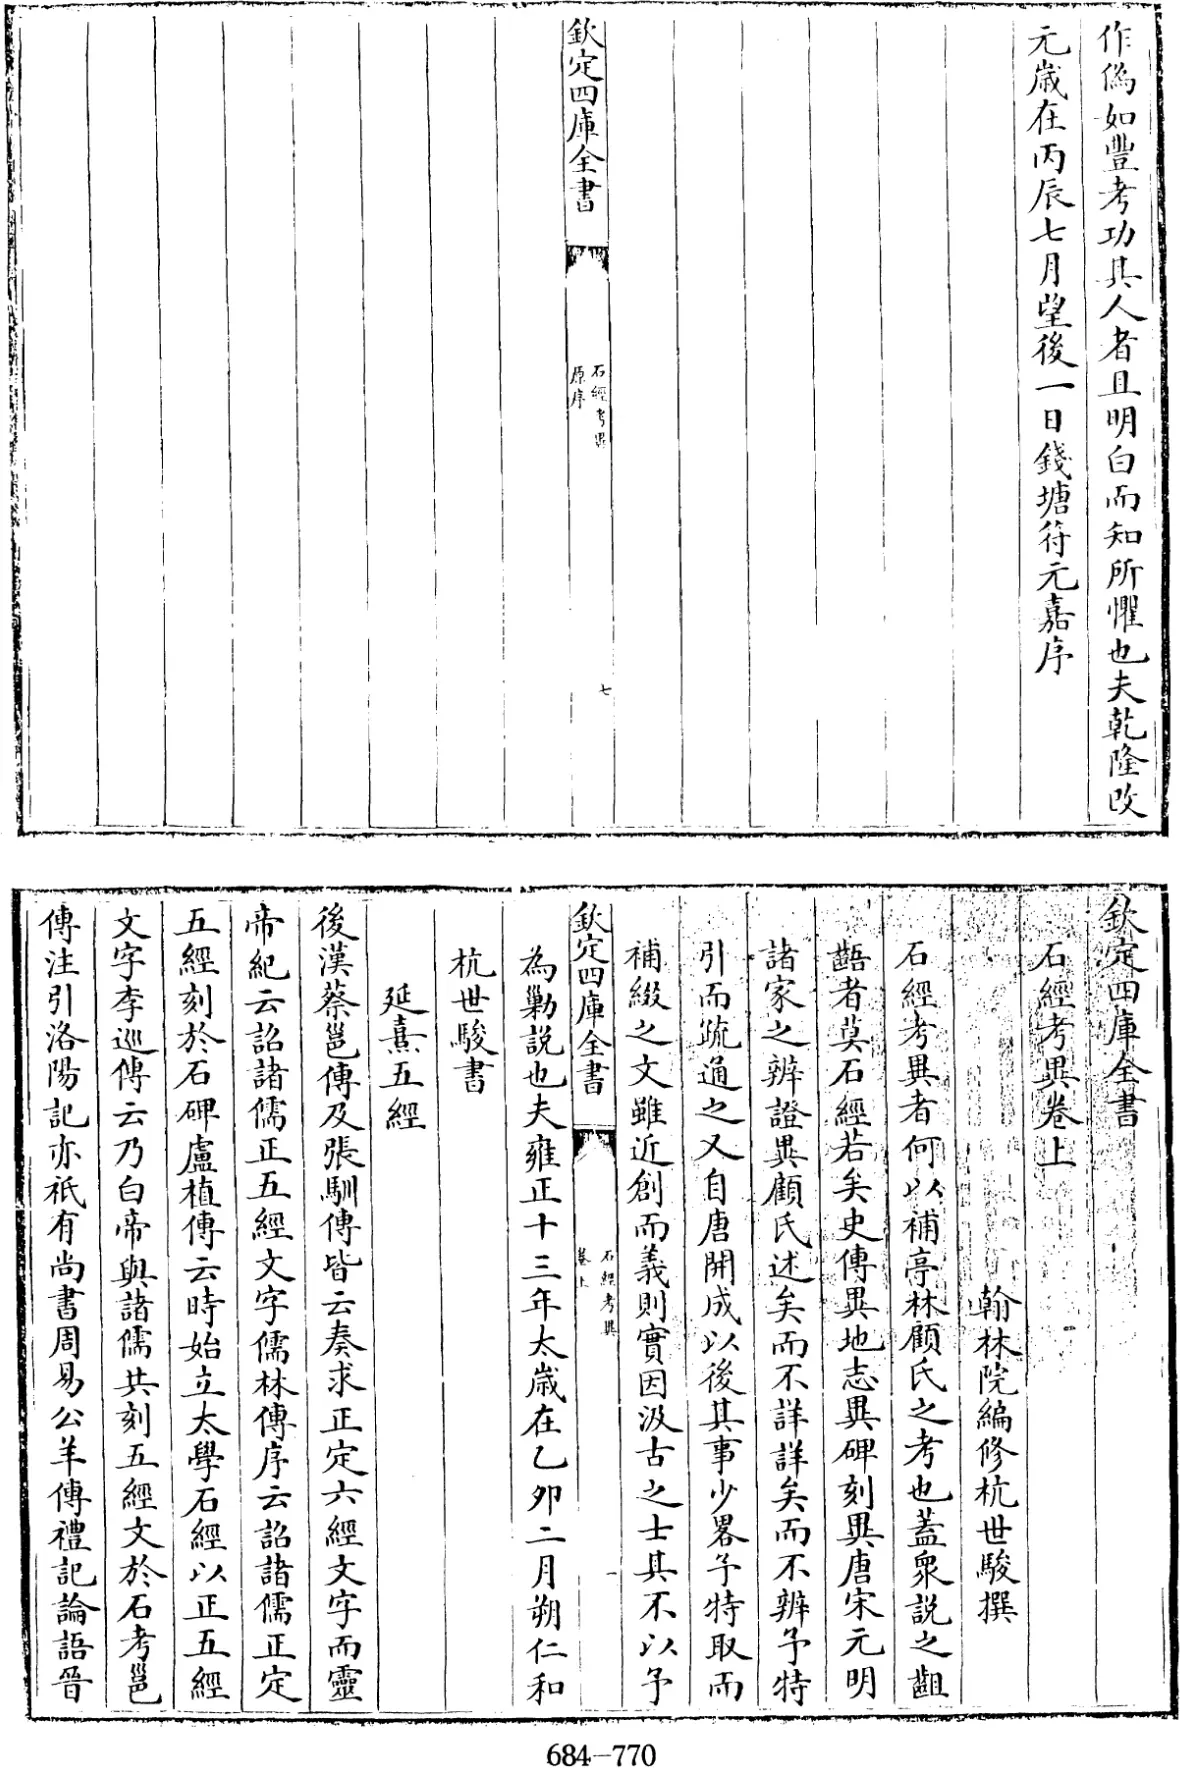 作僞如豐考功其人者且明白而知所懼也夫乾隆改
元歲在丙辰七月望後一日錢塘符元嘉序
欽定四庫全書
石經考異
原序
七
欽定四庫全書
石經考異卷上
翰林院編修杭世駿撰
石經考異者何以補亭林顧氏之考也蓋衆説之齟
齬者莫石經若矣史傳異地志異碑刻異唐宋元明
諸家之辨證異顧氏述矣而不詳詳矣而不辨予特
引而疏通之又自唐開成以後其事少畧予特取而
補綴之文雖近創而義則實因汲古之士其不以予
欽定四庫全書
石經考異
卷上
一
為勦説也夫雍正十三年太歲在乙卯二月朔仁和
杭世駿書
延熹五經
後漢蔡邕傳及張馴傳皆云奏求正定六經文字而靈
帝紀云詔諸儒正五經文字儒林傳序云詔諸儒正定
五經刻於石碑盧植傳云時始立太學石經以正五經
文字李巡傳云乃白帝與諸儒共刻五經文於石考邕
傳注引洛陽記亦祇有尚書周易公羊傳禮記論語晉
684-770